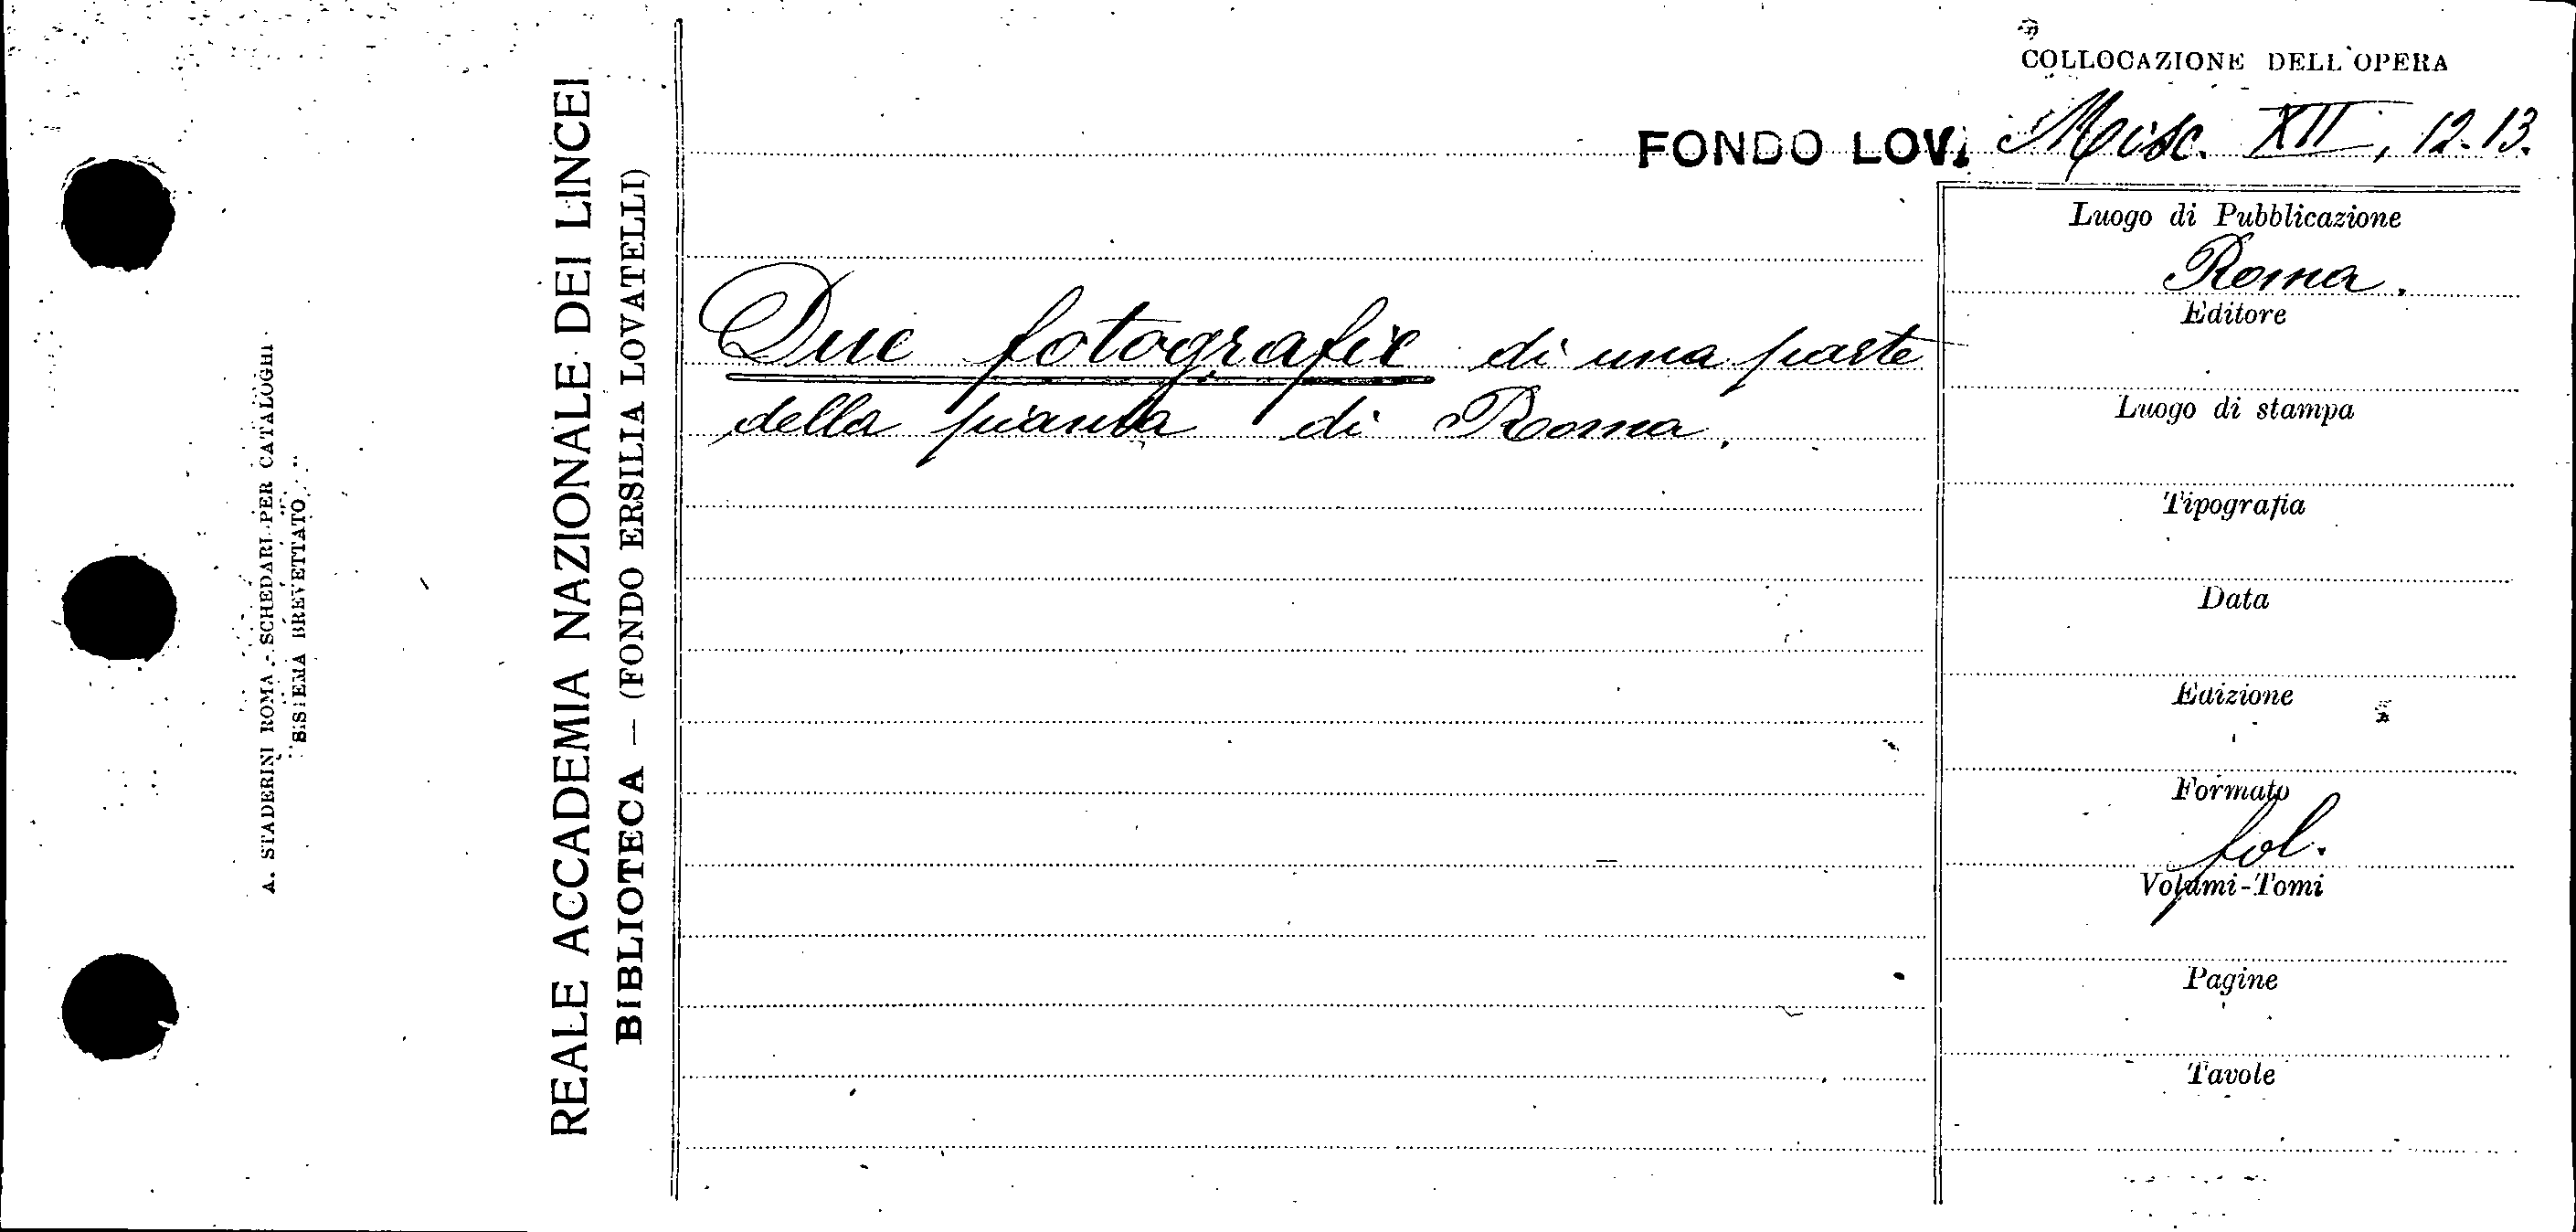 A. STADERINI ROMA - SCHEDARI PER CATALOGHI
SISTEMA BREVETTATO
REALE ACCADEMIA NAZIONALE DEI LINCEI
BIBLIOTECA — (FONDO ERSILIA LOVATELLI)
COLLOCAZIONE DELL'OPERA
FONDO LOV. Misc. XII, 12-13.
Due fotografie di una parte
della pianta di Roma.
Luogo di Pubblicazione
Roma.
Editore
Luogo di stampa
Tipografia
Data
Edizione
Formato
fol.
Volumi-Tomi
Pagine
Tavole